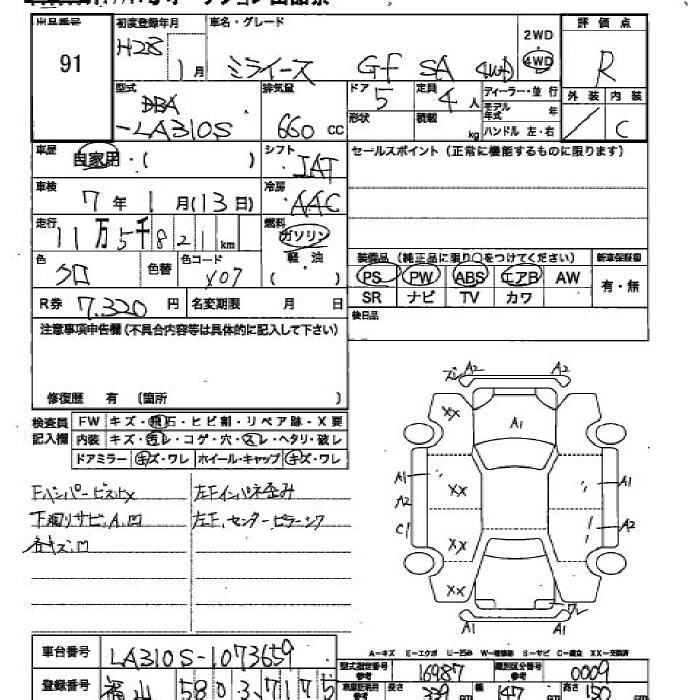 出品番号 初度登録年月 車名・グレード 2WD 評価点
91 H28 1月 ミライース Gf SA (4WD) 4WD R
型式 排気量 ドア 定員 ディーラー・並行 外装 内装
DBA 5 4人 モデル年式 年
-LA310S 660 CC 形状 積載 kg ハンドル 左・右 / C
車歴 自家用・( ) シフト IAT セールスポイント(正常に機能するものに限ります)
車検 7年 1月(13日) 冷房 AAC
走行 11万5千821km 燃料 ガソリン
軽油
( )
装備品 (純正品に限り○をつけてください) 新車保証書
色 クロ 色替 色コード X07 PS PW ABS エアB AW 有・無
SR ナビ TV カワ
R券 7,320円 名変期限 月 日 後日品
注意事項申告欄(不具合内容等は具体的に記入して下さい)
修復歴 有 (箇所 )
検査員 FW キズ・飛石・ヒビ割・リペア跡・X要
記入欄 内装 キズ・汚レ・コゲ・穴・スレ・ヘタリ・破レ
ドアミラー キズ・ワレ ホイール・キャップ キズ・ワレ
A2 A2
XX A1
A1 XX A1
A2 A2
C1 XX
XX
A1 A1
Fバンパービス止メ 左Fインパネ歪み
下廻りサビ、A、凹 左F、センターピラー
各キズ、凹
A-キズ E-エクボ U-凹み W-補修跡 S-サビ C-腐食 XX-交換済
車台番号 LA310S-1073659
型式指定番号 16987 類別区分番号 0009
参考 参考
登録番号 福山 580 長さ 339 cm 幅 147 高さ 150